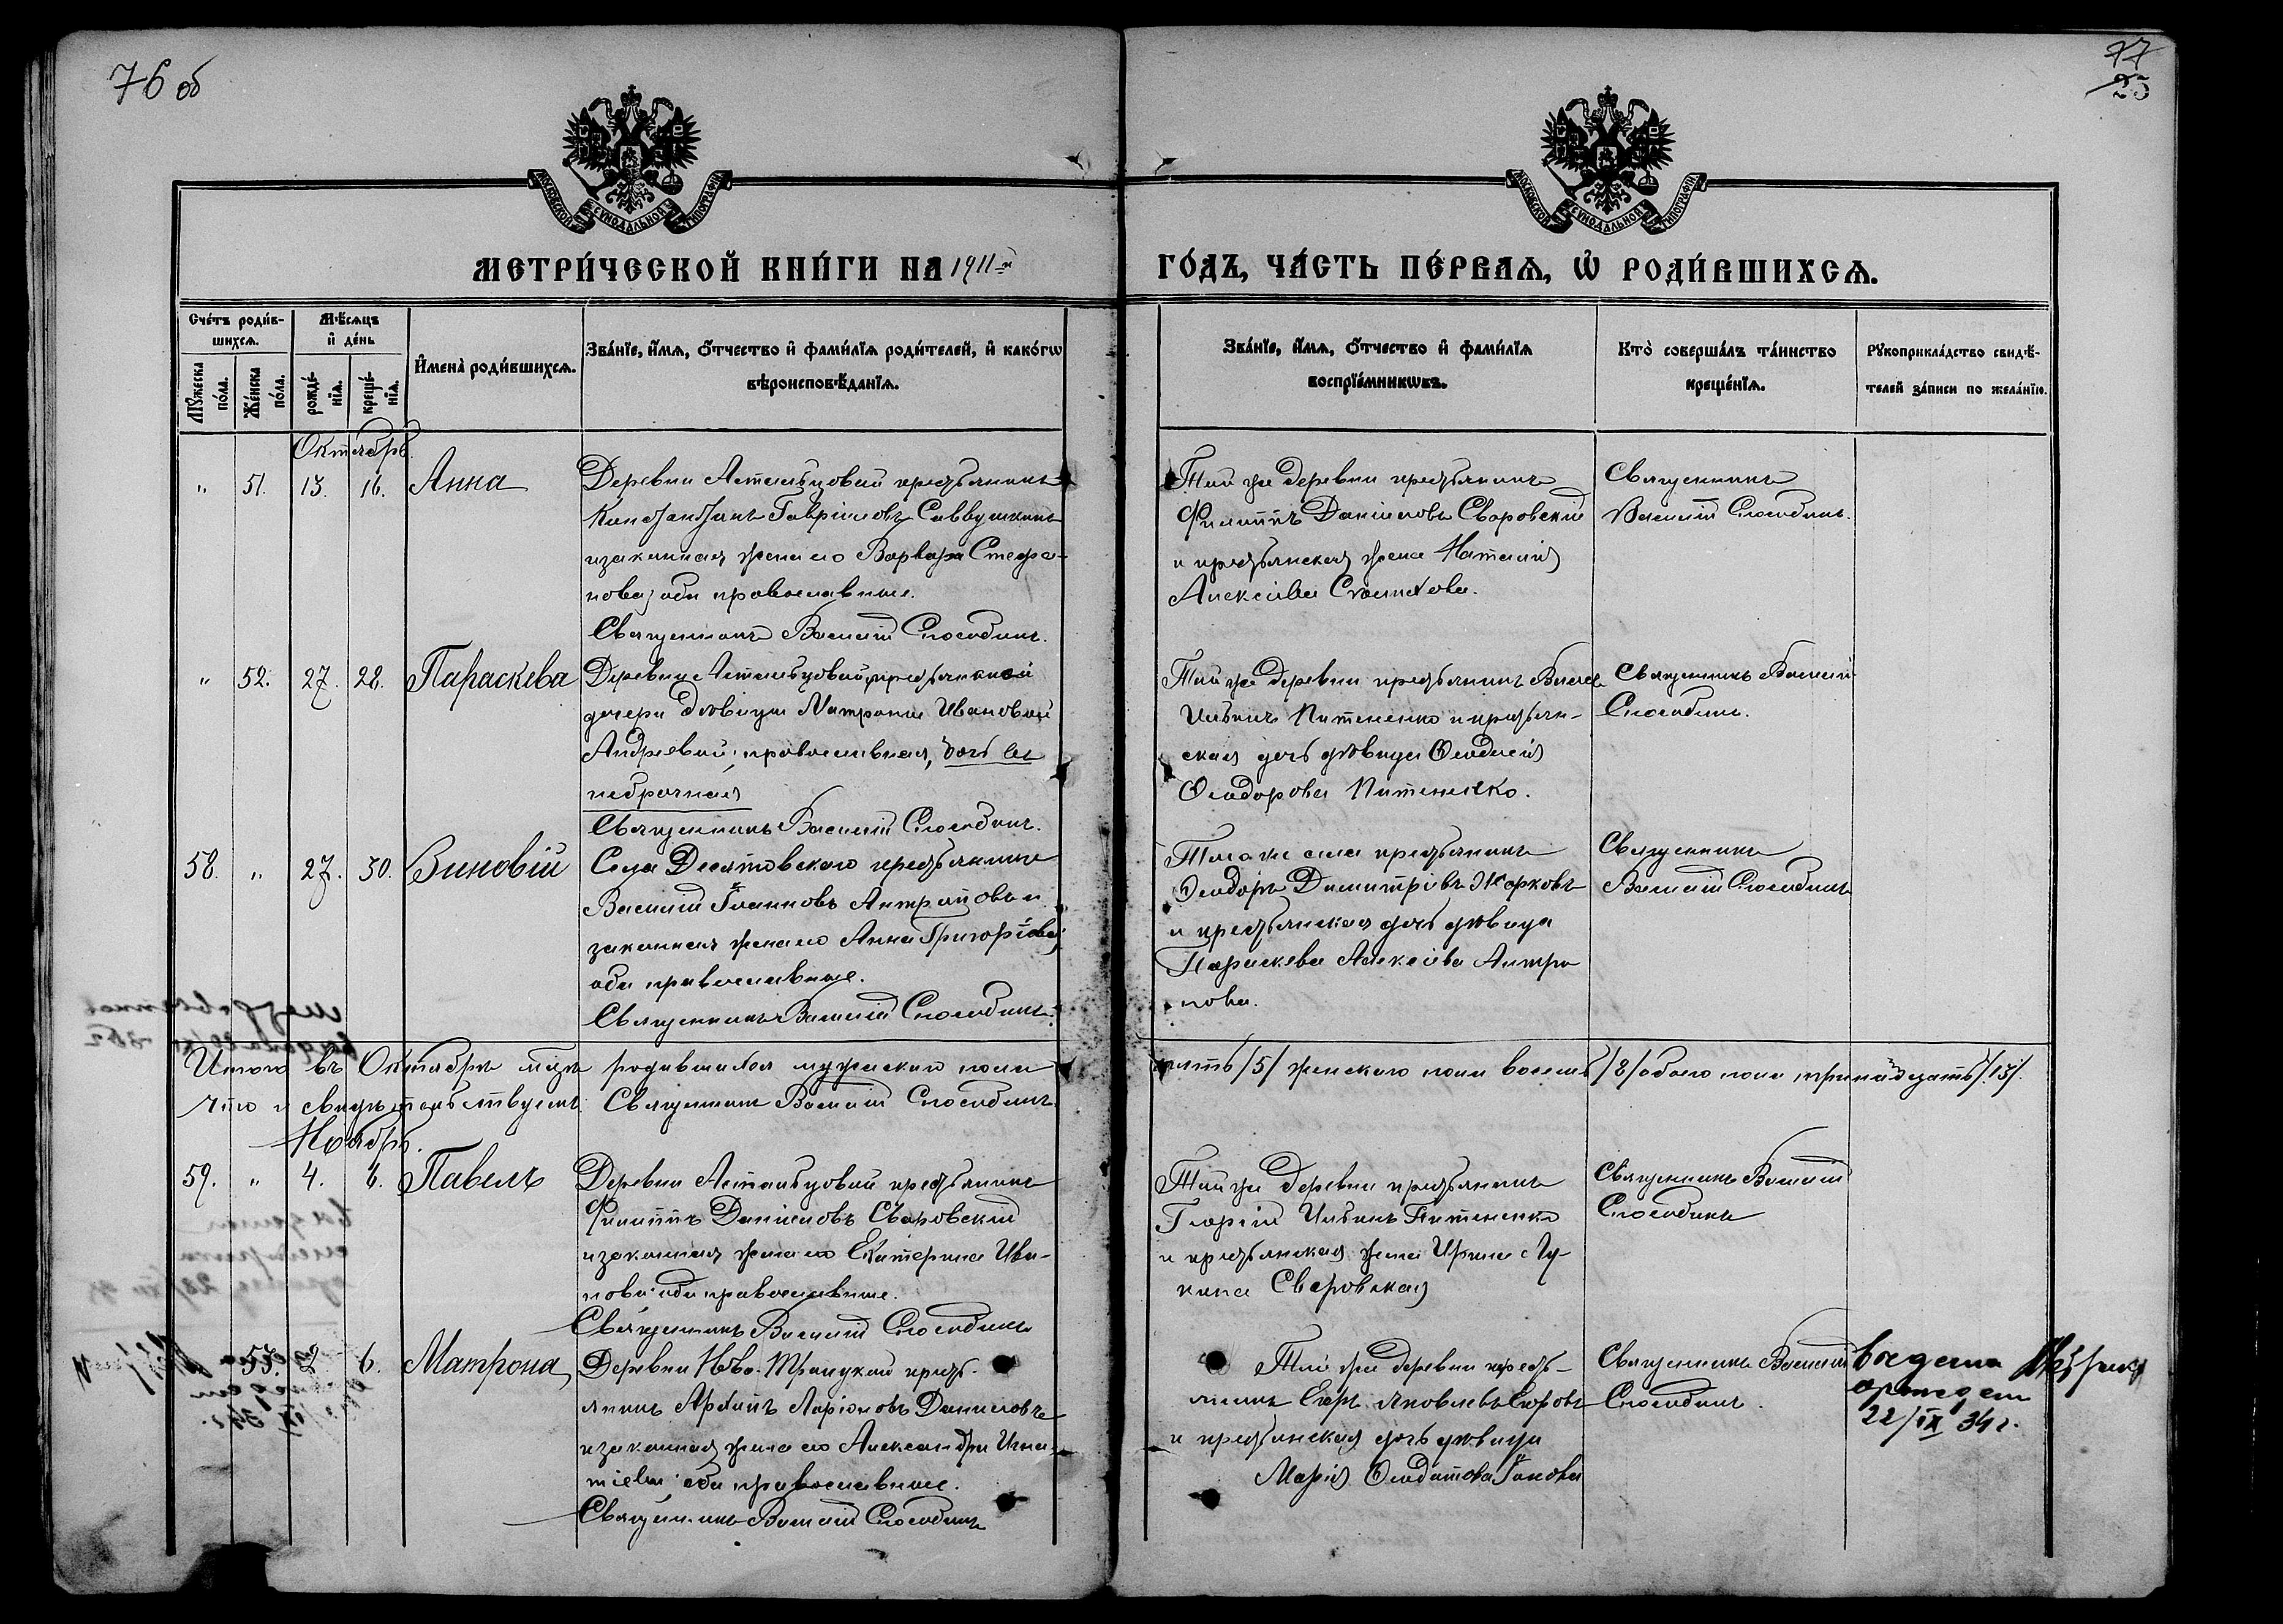 76 об
77
25
МОСКОВСКОЙ СѴНОДАЛЬНОЙ ТИПОГРАФІИ
МОСКОВСКОЙ СѴНОДАЛЬНОЙ ТИПОГРАФІИ
МЕТРИ́ЧЕСКОЙ КНИ́ГИ НА 1911-й
ГО́ДЪ, ЧА́СТЬ ПЕ́РВАѦ, Ѡ҆ РОДИ́ВШИХСѦ.
Сче́тъ роди́в-
шихсѧ.
Мѣ́сѧцъ
и҆ де́нь
Мꙋ́жеска по́ла.
Же́нска по́ла.
рожде́-
нїѧ.
креще́-
нїѧ.
И҆мена̀ роди́вшихсѧ.
Зва́нїе, и҆́мѧ, ѻ҆́тчество и҆ фами́лїѧ роди́телей, и҆ како́гѡ
вѣроисповѣ́данїѧ.
Зва́нїе, и҆́мѧ, ѻ҆́тчество и҆ фами́лїѧ
воспрїе́мникѡвъ.
Кто̀ соверша́лъ та́инство
креще́нїѧ.
Рꙋкоприкла́дство свидѣ́-
телей за́писи по жела́нїю.
Октябрь.
" 51. 13. 16. Анна
Деревни Астальцовой крестьянинъ
Константинъ Гавріиловъ Саввушкинъ
и законная жена его Варвара Стефа-
нова; оба православные.
Священникъ Василій Слободинъ.
Той же деревни крестьянинъ
Филиппъ Даніиловъ Сваровскій
и крестьянская жена Наталія
Алексіева
Священникъ
Василій Слободинъ.
" 52. 27. 28. Параскева
Деревни Астальцовой, крестьянской
дочери дѣвицы Матроны Ивановой
Андреевой; православная, дочь ея
небрачная
Священникъ Василій Слободинъ.
Той же деревни крестьянинъ
Ильинъ Питененко и крестьян-
ская дочь дѣвица
Ѳеодорова Питененко.
Священникъ Василій
Слободинъ.
58. " 27. 30. Зиновій
Села Десятовскаго крестьянинъ
Василій Іоанновъ Антроповъ и
законная жена его Анна Григоріева;
оба православные.
Священникъ Василій Слободинъ.
Того же села крестьянинъ
Ѳеодоръ Димитріевъ Жарковъ
и крестьянская дочь дѣвица
Параскева Алексіева Антро
пова.
Священникъ
Василій Слободинъ
Итого въ Октябрѣ мѣсяцѣ родившихся мужескаго пола
пять /5/ женскаго пола восемь /8/ обоего пола тринадцать /13/.
Что и свидѣтельствуемъ: Священникъ Василій Слободинъ.
Ноябрь.
59. " 4. 6. Павелъ
Деревни Астальцовой крестьянинъ
Филиппъ Даніиловъ Сваровскій
и законная жена его Екатерина Ива-
нова; оба православные.
Священникъ Василій Слободинъ
Той же деревни крестьянинъ
Георгій Ильинъ Питененко
и крестьянская жена Ирина Лу-
кина Сваровская
Священникъ Василій
Слободинъ
53. 2 6. Матрона
Деревни Ново-Троицкой кресть-
янинъ Архипъ Ларіоновъ Даниловъ
и законная жена его Александра Игна-
тіева; оба православные.
Священникъ Василій Слободинъ
Той же деревни кресть-
янинъ Егоръ Яковлевъ Егоровъ
и крестьянская дочь дѣвица
Марія
Священникъ Василій
Слободинъ.
Выдана метрика
22/IX 34 г.